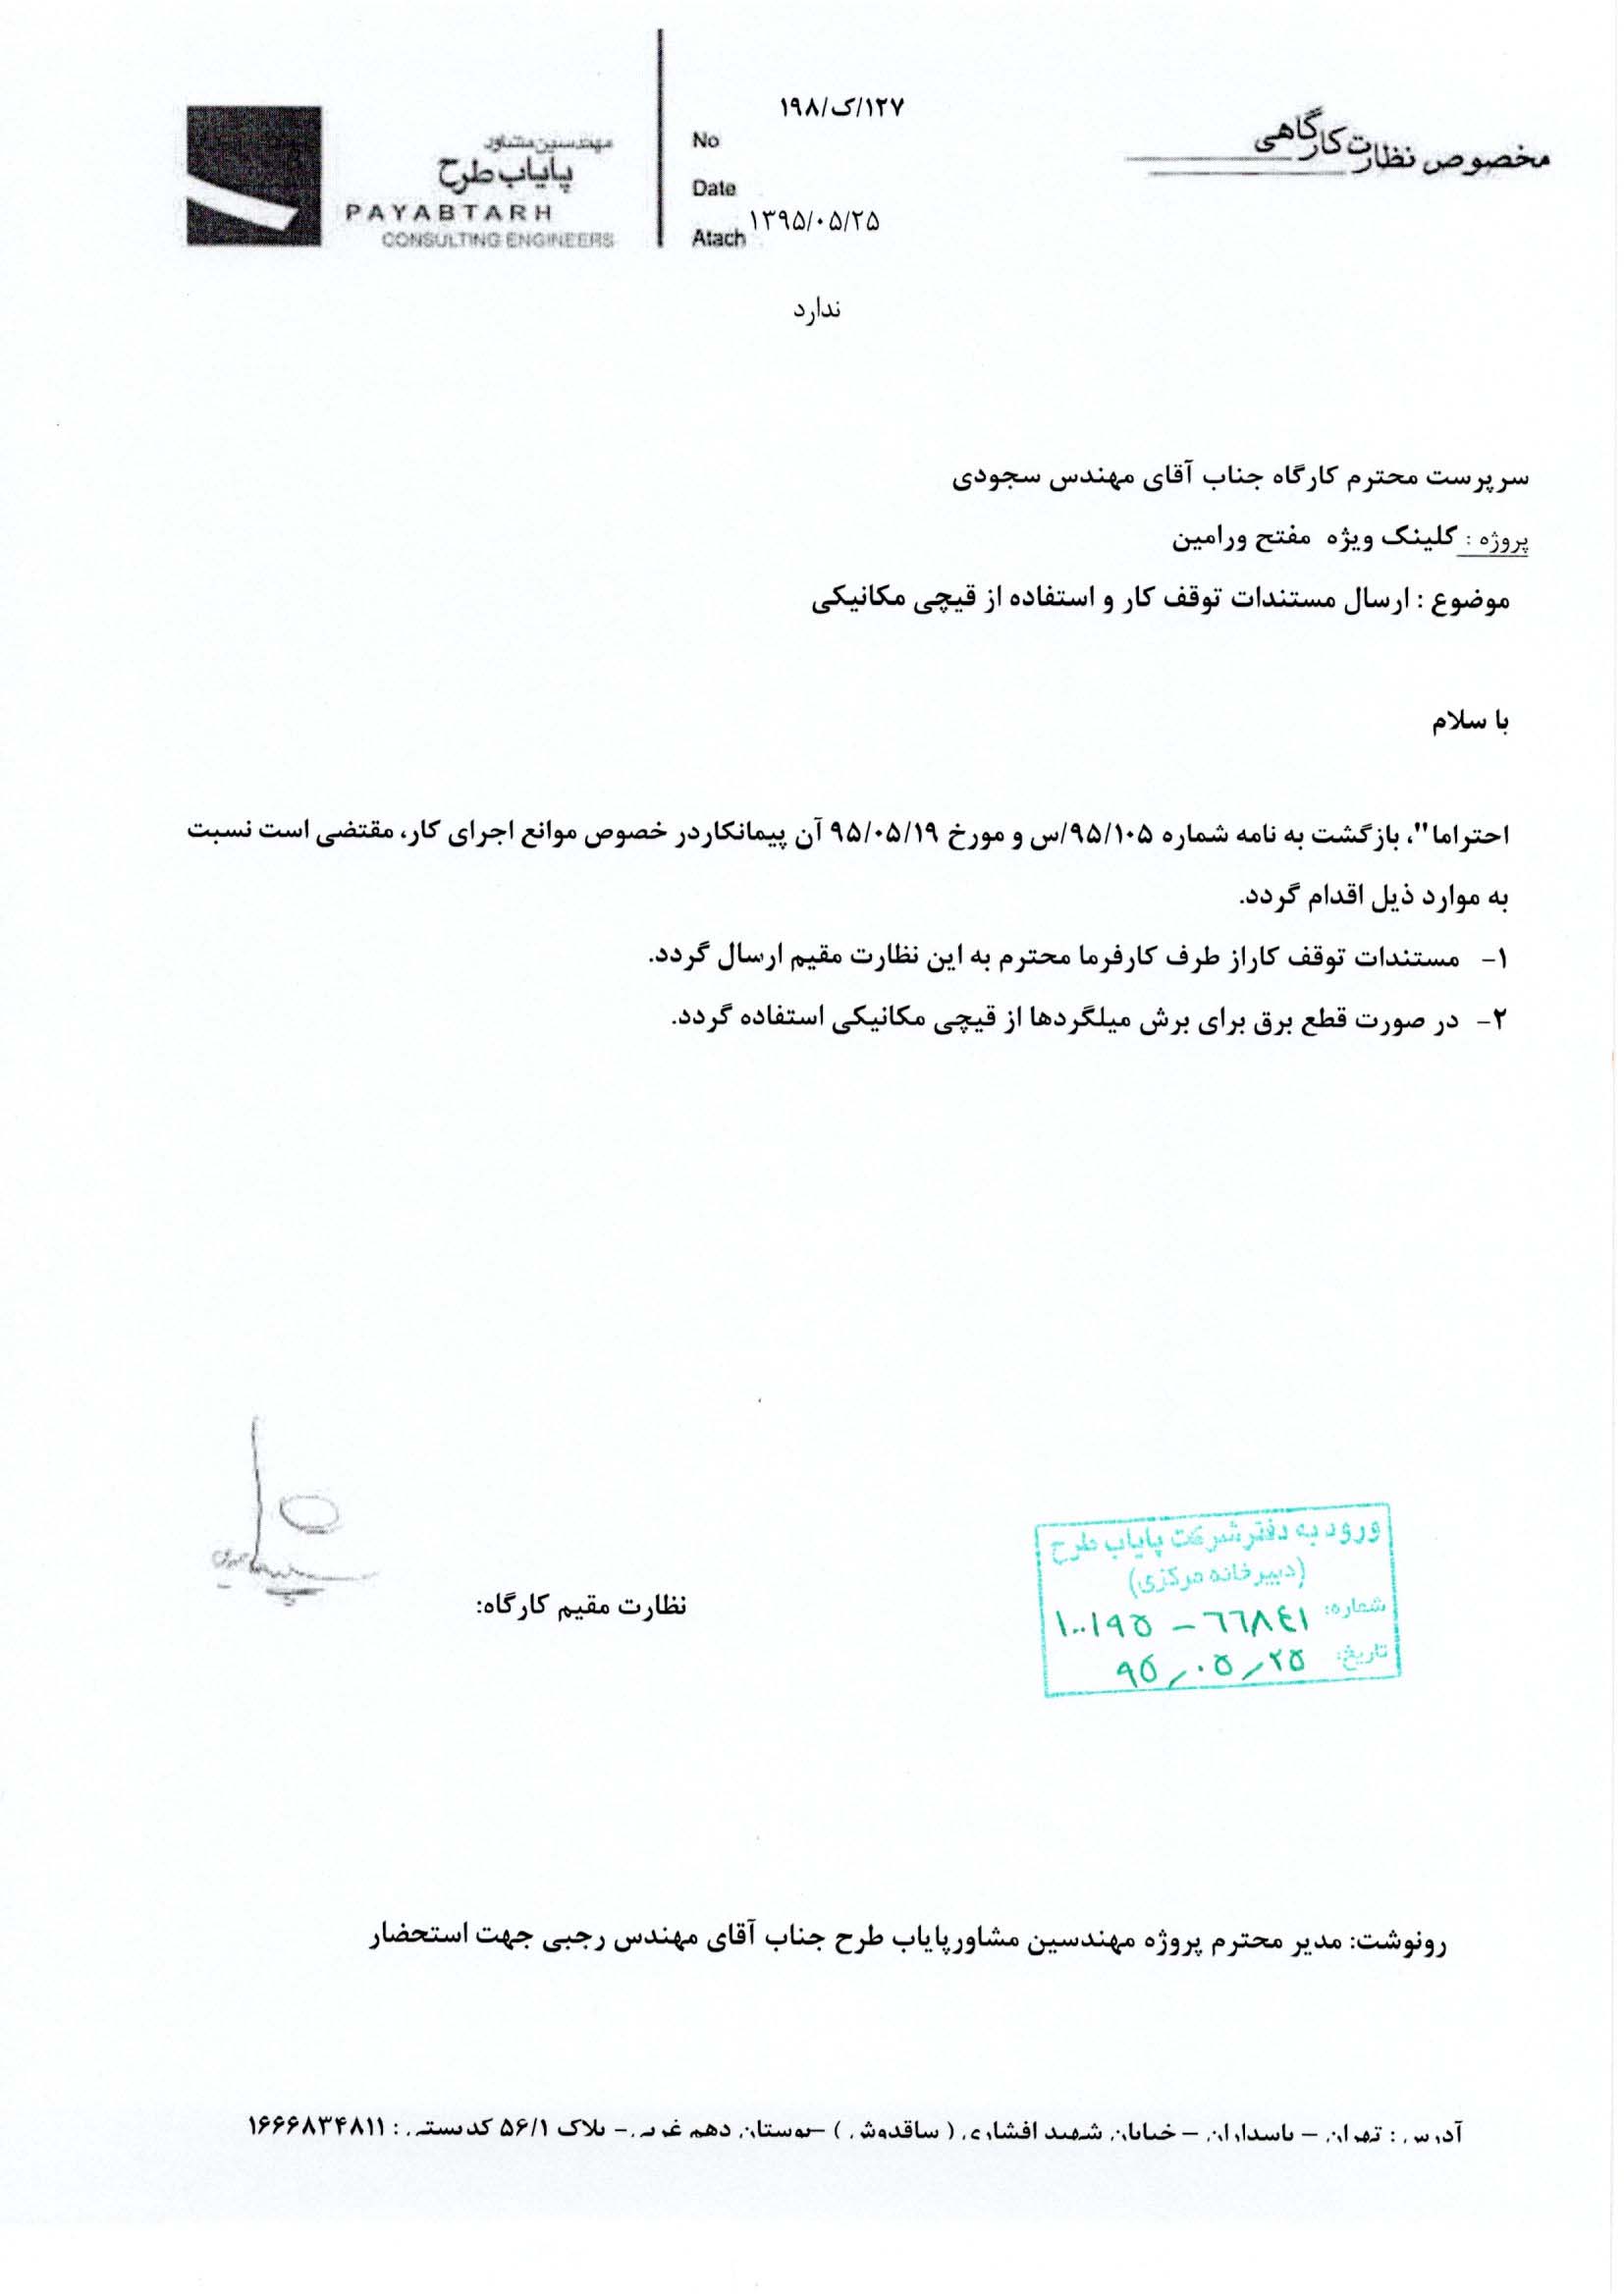 مخصوص نظارت کارگاهی
مهندسین مشاور
پایاب طرح
PAYABTARH
CONSULTING ENGINEERS
۱۲۷/ک/۱۹۸
No
Date
۱۳۹۵/۰۵/۲۵
Atach
ندارد
سرپرست محترم کارگاه جناب آقای مهندس سجودی
پروژه : کلینک ویژه مفتح ورامین
موضوع : ارسال مستندات توقف کار و استفاده از قیچی مکانیکی
با سلام
احتراما"، بازگشت به نامه شماره ۹۵/۱۰۵/س و مورخ ۹۵/۰۵/۱۹ آن پیمانکاردر خصوص موانع اجرای کار، مقتضی است نسبت
به موارد ذیل اقدام گردد.
۱- مستندات توقف کاراز طرف کارفرما محترم به این نظارت مقیم ارسال گردد.
۲- در صورت قطع برق برای برش میلگردها از قیچی مکانیکی استفاده گردد.
ورود به دفتر شرکت پایاب طرح
(دبیرخانه مرکزی)
شماره: ۶۶۸۴۱ - ۱۰۰۱۹۵
تاریخ: ۹۵/۰۵/۲۵
نظارت مقیم کارگاه:
رونوشت: مدیر محترم پروژه مهندسین مشاورپایاب طرح جناب آقای مهندس رجبی جهت استحضار
آدرس : تهران – پاسداران – خیابان شهید افشاری ( ساقدوش ) –بوستان دهم غربی– پلاک ۵۶/۱ کدپستی : ۱۶۶۶۸۳۴۸۱۱